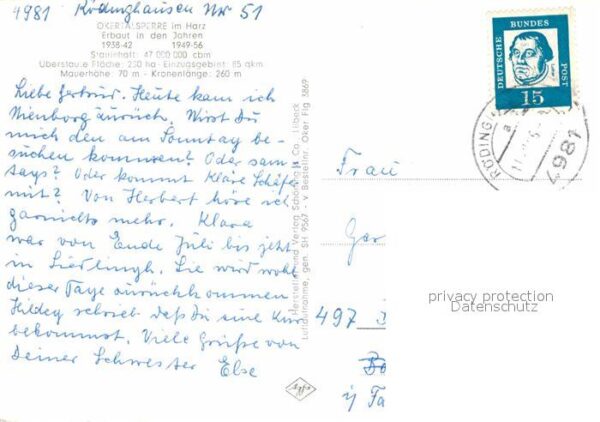 4981 Rödinghausen Nr 51
OKERTALSPERRE im Harz
Erbaut in den Jahren
1938-42 1949-56
Stauinhalt: 47 000 000 cbm
Überstaute Fläche: 230 ha - Einzugsgebiet: 85 qkm
Mauerhöhe: 70 m - Kronenlänge: 260 m
Liebe Gertrud. Heute kam ich
Nienborg zurück. Wirst Du
mich den am Sonntag be-
suchen kommen? Oder sam
stags? Oder kommt Kläre Schäfer
mit? Von Herbert höre ich
garnichts mehr. Klara
war von Ende Juli bis jetzt
in Sie wird wohl
dieser Tage zurückkommen
Hildeg schrieb daß Du eine Kur
bekommst. Viele Grüße von
Deiner Schwester Else
Hersteller und Verlag Schöning & Co., Lübeck
Luftaufnahme, gen. SH 9567 - V. Bestellnr. Oker Flg 3869
Agfa
DEUTSCHE BUNDES POST
15
RÖDINGH
a
4981
Frau
Ger
497
i/ Fa
privacy protection
Datenschutz